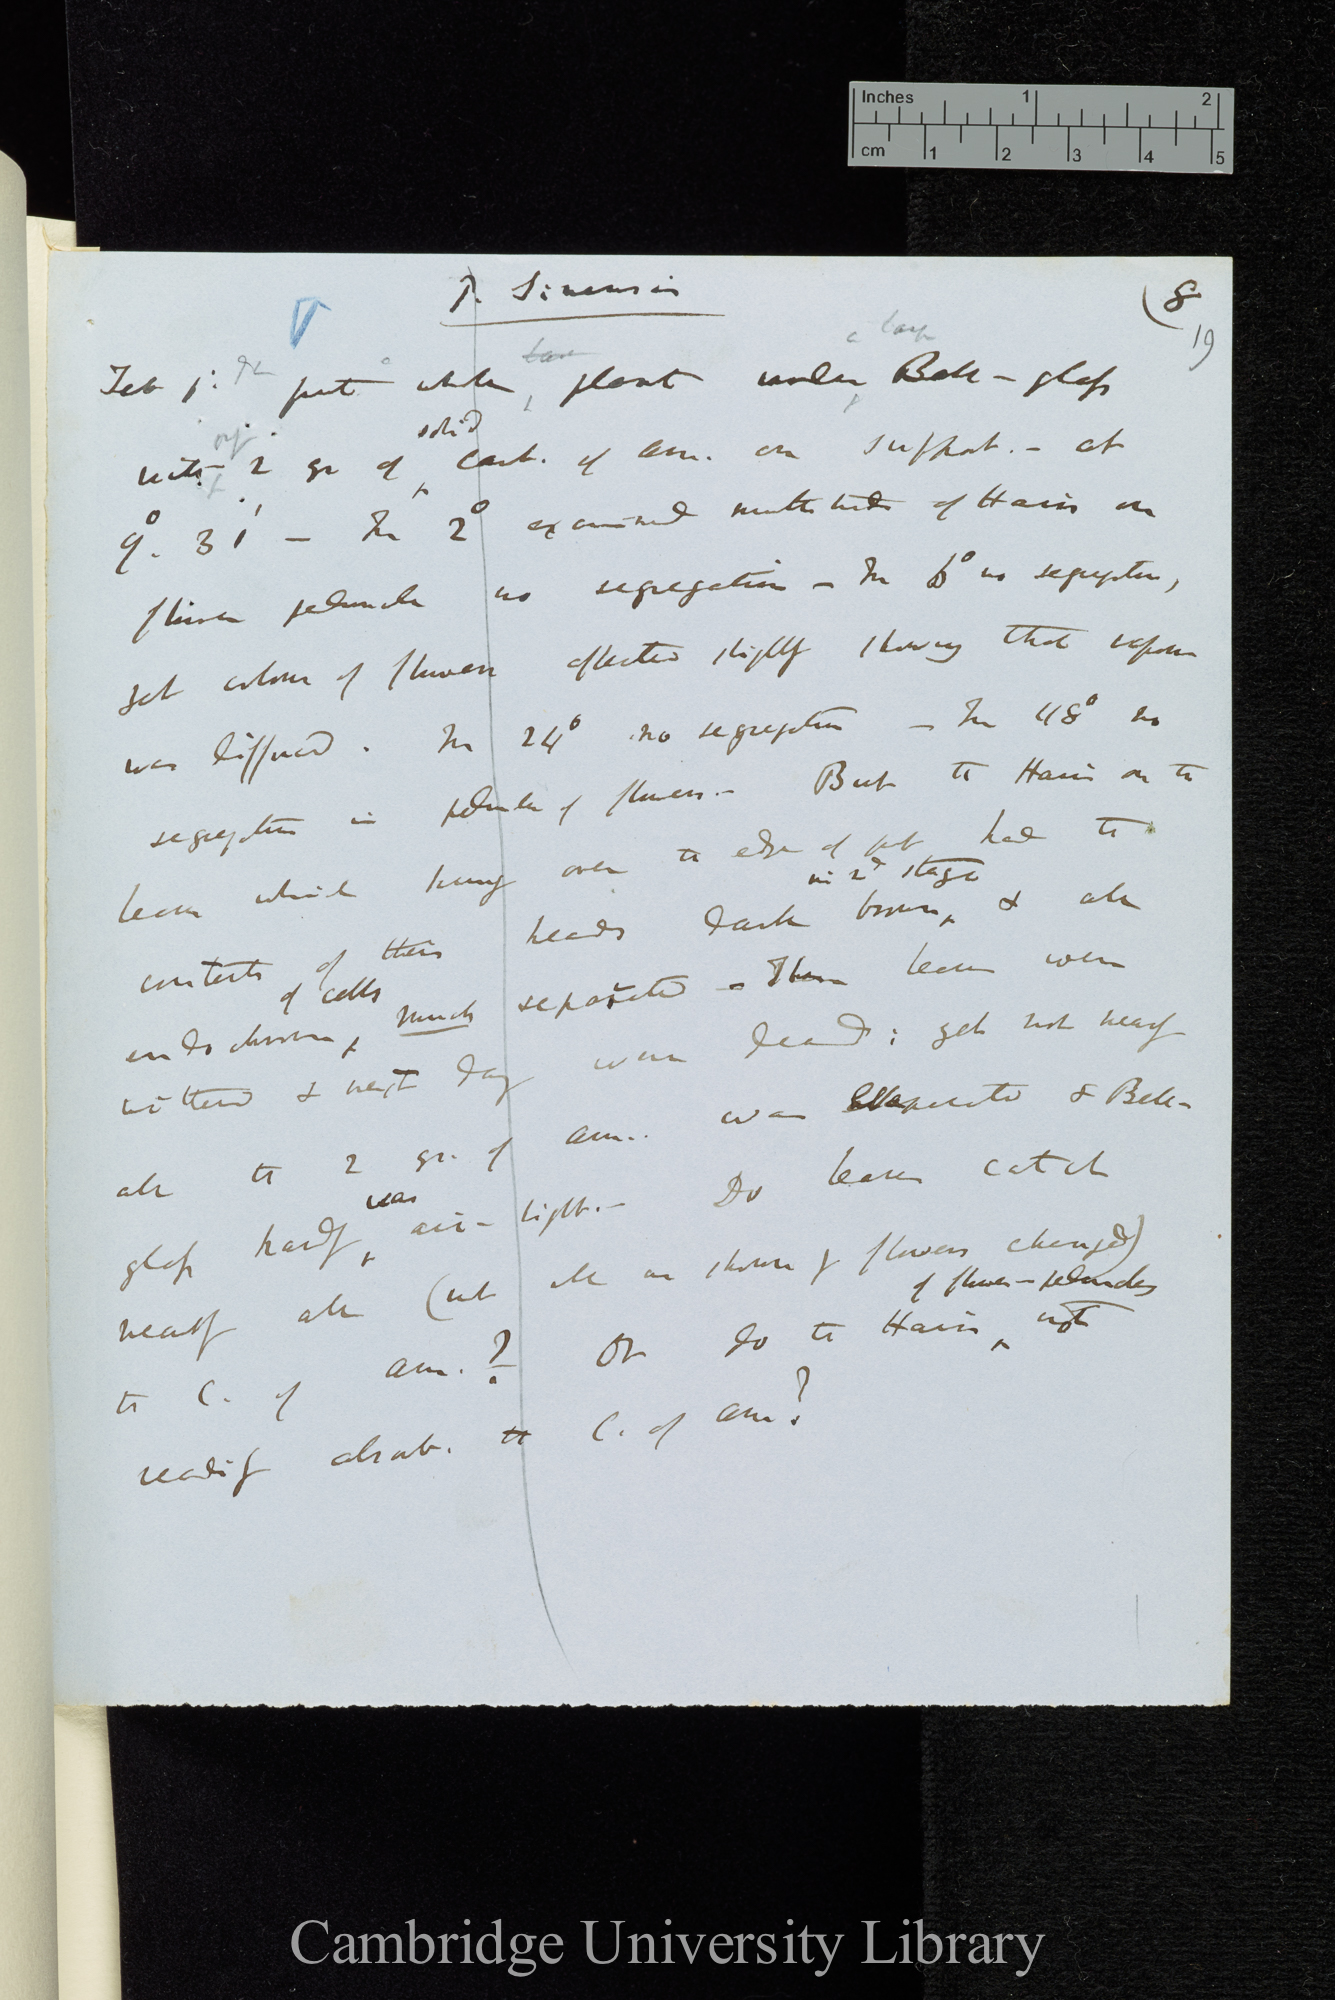 Inches 1 2
cm 1 2 3 4 5
P. Sinensis
(8
19
a large
Feb 1. put whole plant under Bell-glass
only solid
with 2 gr of carb. of am. on support. - at
9°. 31' - In 2° examined multitude of Hairs on
flower peduncle no segregation - In 6° no segregation,
yet colour of flowers affected slightly showing that vapour
was diffused. In 24° no segregation - In 48° no
segregation in peduncle of flowers. - But the Hairs on the
leaves which hung over the edge of pot had the
in 2d stage
contents of their heads dark brown, & all
of cells
endochrome, much separated - These leaves were
withered & next day were dead; yet not nearly
all the 2 gr. of am.. was evaporated & Bell-
was
glass hardly air-tight. - Do leaves catch
nearly all (not all as shown by flowers changed)
of flower-peduncles
the C. of am.? Or do the Hairs not
readily absorb. the C. of am?
Cambridge University Library